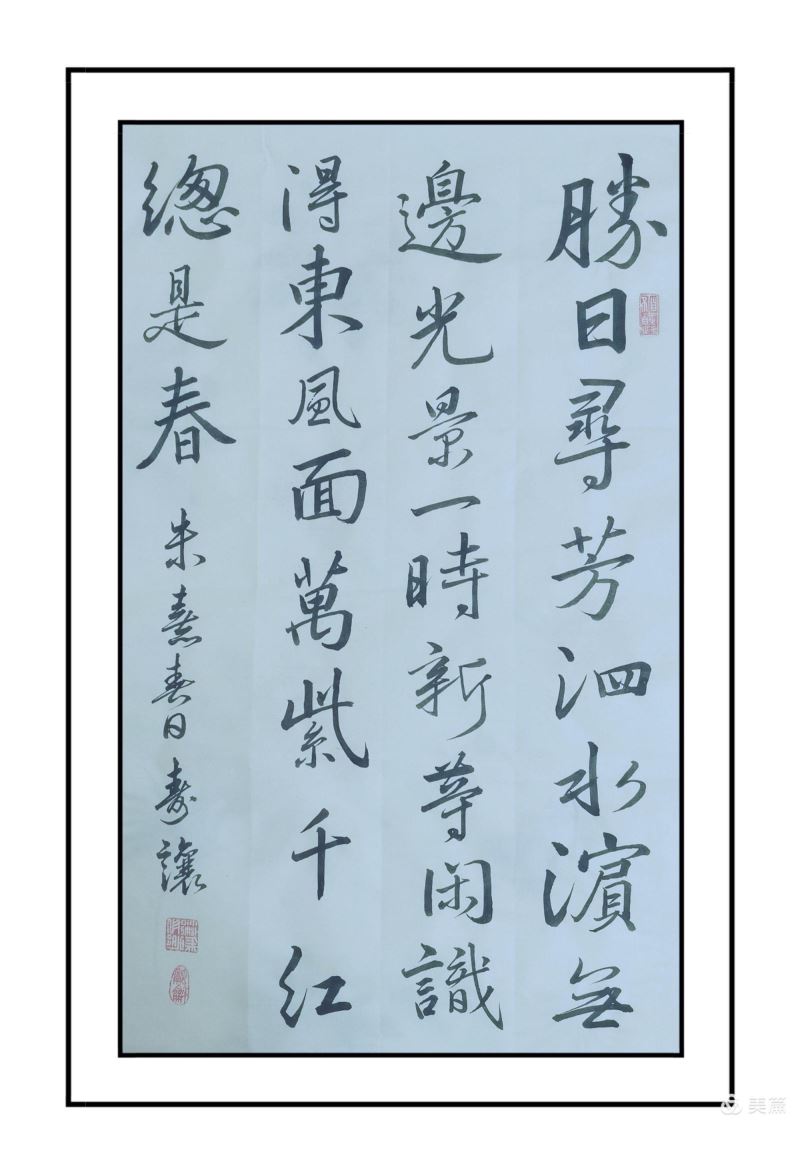 勝日尋芳泗水濱無
邊光景一時新等閑識
得東風面萬紫千紅
總是春
朱熹春日壽讓
美篇